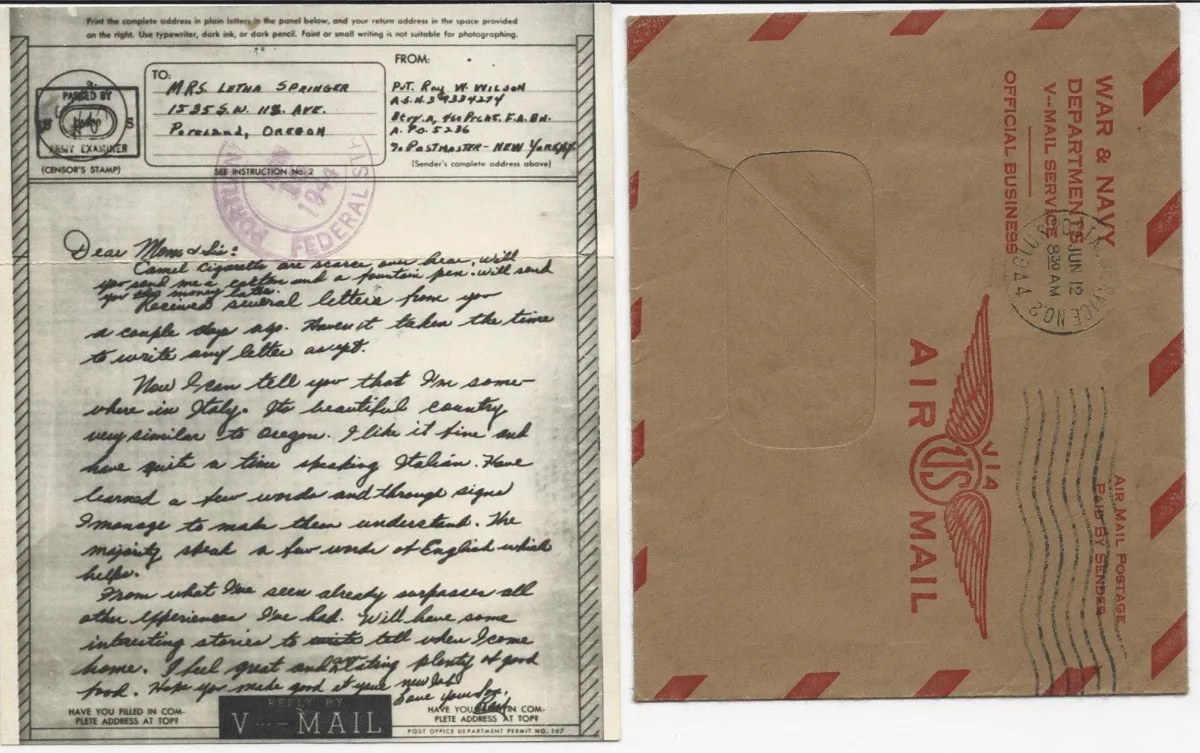 Print the complete address in plain letters in the panel below, and your return address in the space provided
on the right. Use typewriter, dark ink, or dark pencil. Faint or small writing is not suitable for photographing.
PASSED BY
ARMY EXAMINER
(CENSOR'S STAMP)
TO:
MRS. LETHA SPRINGER
1535 S.W. 11th. AVE.
PORTLAND, OREGON
SEE INSTRUCTION No. 2
FROM:
PVT. Ray W. WILSON
A.S.N. 39334274
Btry. A, 460 Prcht. F.A. Bn.
A.P.O. 5236
% POSTMASTER - NEW YORK NY
(Sender's complete address above)
FEDERAL
1944
Dear Mom & Sis:
Camel Cigarettes are scarce over hear, will
you send me a carton and a fountain pen. will send
you the money later.
Received several letters from you
a couple days ago. Haven't taken the time
to write any letter accept.
Now I can tell you that I'm some-
where in Italy. Its beautiful country
very similar to Oregon. I like it fine and
have quite a time speaking Italian. Have
learned a few words and through signs
I manage to make them understand. The
majority speak a few words of English which
helps.
From what I've seen already surpasses all
other experiences I've had. Will have some
interesting stories to tell when I come
home. I feel great and eating plenty of good
food. Hope you make good at your new job
Love your Son,
Ray
HAVE YOU FILLED IN COM-
PLETE ADDRESS AT TOP?
REPLY BY
V···—MAIL
HAVE YOU IN COM-
PLETE ADDRESS AT TOP?
POST OFFICE DEPARTMENT PERMIT NO. 107
WAR & NAVY
DEPARTMENTS
V--MAIL SERVICE
OFFICIAL BUSINESS
JUN 12
8 30 AM
1944
NO. 2
VIA
US
AIR MAIL
AIR MAIL POSTAGE
PAID BY SENDER